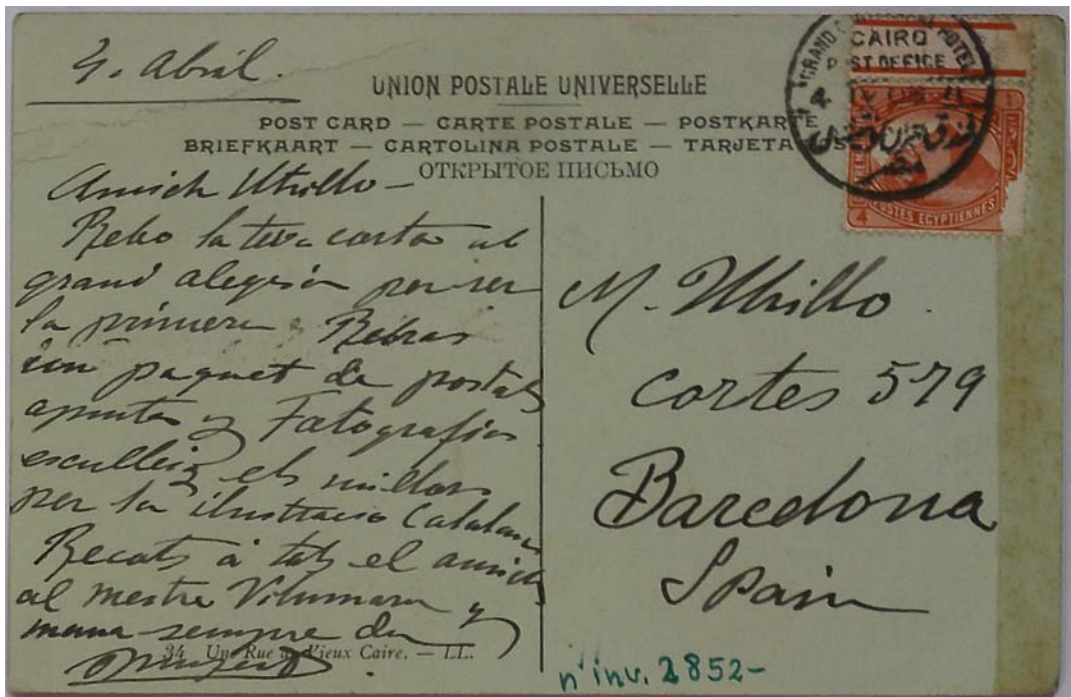 4. Abril.
UNION POSTALE UNIVERSELLE
POST CARD — CARTE POSTALE — POSTKARTE
BRIEFKAART — CARTOLINA POSTALE — TARJETA
ОТКРЫТОЕ ПИСЬМО
GRAND HOTEL
CAIRO
POST OFFICE
POSTES EGYPTIENNES
4
Amich Utrillo —
Rebo la teva carta ab
grand alegria per ser
la primera. Rebras
un paquet de postals
apuntes y Fotografias
esculleix els millors
per la ilustracio Catalana
Recats á tots el amichs
al mestre Vilumara y
mana sempre de
34 Une Rue au Vieux Caire. — LL.
M. Utrillo
Cortes 579
Barcelona
Spain
n° inv. 2852-